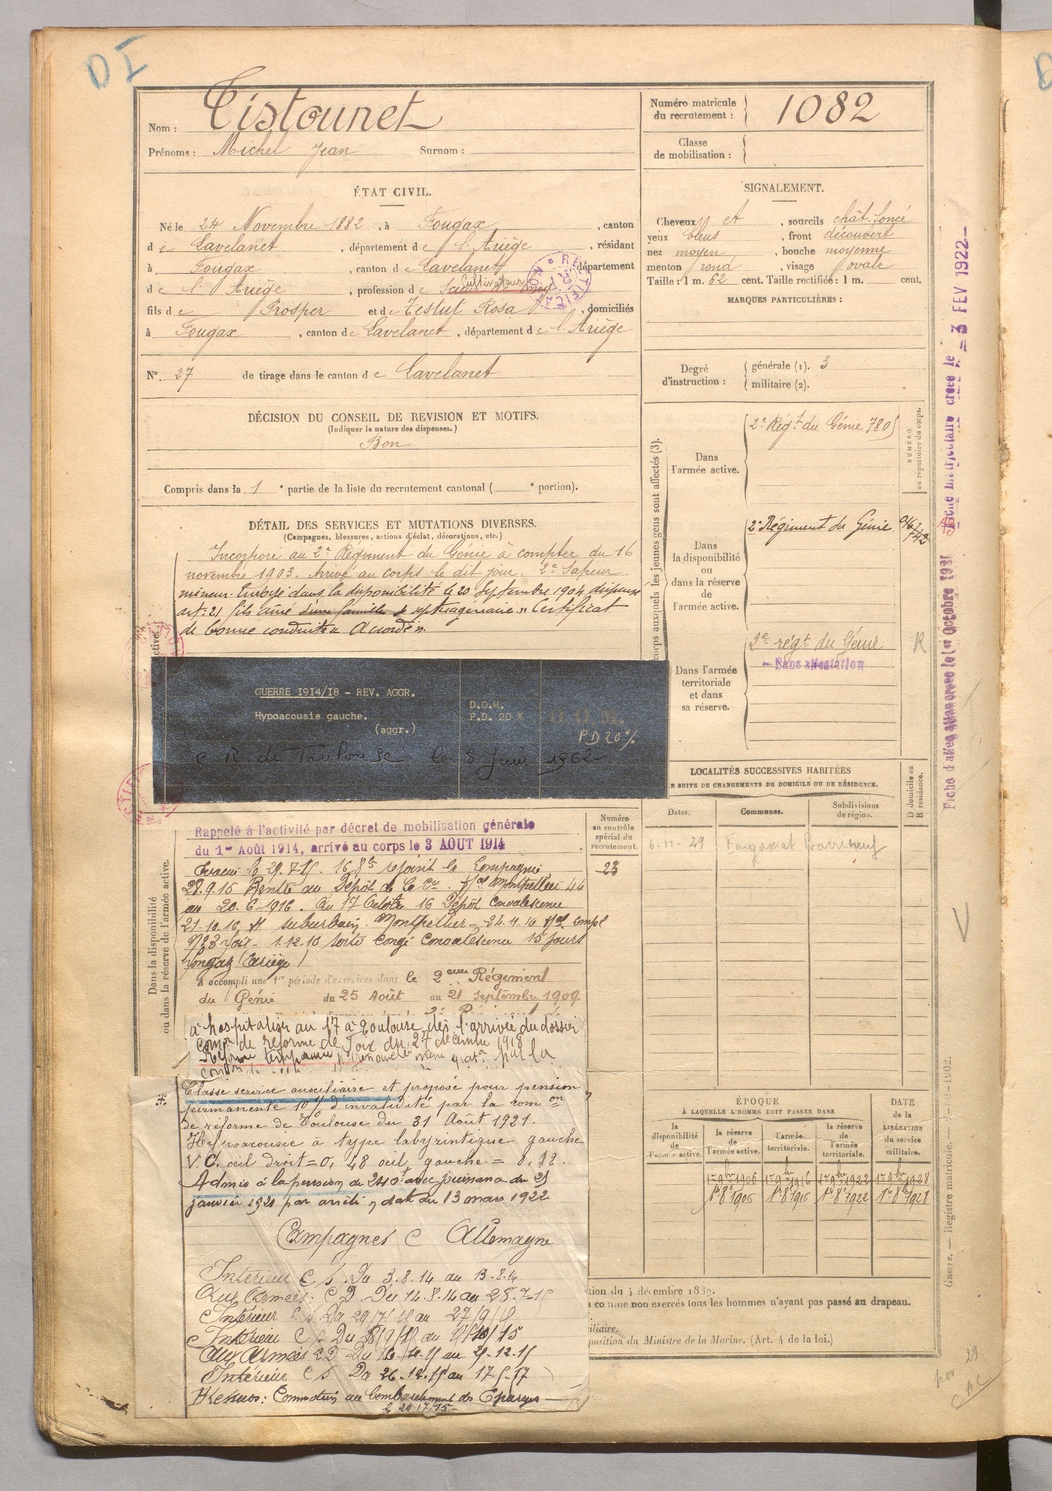 D I
Nom : Tistounet
Prénoms : Michel Jean Surnom :
Numéro matricule du recrutement : 1082
Classe de mobilisation :
ÉTAT CIVIL.
Né le 24 Novembre 1882, à Fougax, canton
de Lavelanet, département de l'Ariège, résidant
à Fougax, canton de Lavelanet, département
de l'Ariège, profession de Cultivateur
fils de Prosper et de Testut Rosa, domiciliés
à Fougax, canton de Lavelanet, département de l'Ariège
N° 27 de tirage dans le canton de Lavelanet
DÉCISION DU CONSEIL DE REVISION ET MOTIFS.
(Indiquer la nature des dispenses.)
Bon
Compris dans la 1e partie de la liste du recrutement cantonal ( e portion).
SIGNALEMENT.
Cheveux et, sourcils chât. foncé
yeux bleus, front découvert
nez moyen, bouche moyenne
menton rond, visage ovale
Taille : 1 m. 62 cent. Taille rectifiée : 1 m. cent.
MARQUES PARTICULIÈRES :
Degré d'instruction : générale (1). 3
militaire (2).
DÉTAIL DES SERVICES ET MUTATIONS DIVERSES.
(Campagnes, blessures, actions d'éclat, décorations, etc.)
Incorporé au 2e Régiment du Génie à compter du 16
novembre 1903. Arrivé au corps le dit jour. 2e Sapeur
mineur. Envoyé dans la disponibilité le 20 Septembre 1904 dispensé
art. 21 fils aîné de septuagénaire. Certificat
de bonne conduite « Accordé ».
GUERRE 1914/18 - REV. AGGR.
Hypoacousie gauche.
(aggr.)
D.O.M.
P.D. 20 %
PD 20%
C R de Toulouse le 8 Juin 1962
Rappelé à l'activité par décret de mobilisation générale
du 1er Août 1914, arrivé au corps le 3 AOUT 1914
Evacué le 29.7.15. rejoint le Compagnie
28.9.15 Rentré au Dépôt
au 20.6.1916. 16 Dépôt Convalescence
21.10.16 suburbain Montpellier 24.4.16
Foix. 1.12.16 sorti congé Convalescence 15 jours
Fougax (Ariège)
A accompli une 1re période d'exercices dans le 2ème Régiment
du Génie du 25 Août au 21 Septembre 1909.
à hospitaliser au 17 à Toulouse dès l'arrivée du dossier
Comon de réforme de Foix du 24 décembre 1918
Réformé temporaire par la
Classé service auxiliaire et proposé pour pension
permanente 10% d'invalidité par la comon
de réforme de Toulouse du 31 Août 1921.
Hypoacousie à type labyrintique gauche
V.O. oeil droit = 0, 48 oeil gauche =
Admis à la pension de 240f avec jouissance du 25
janvier 1920 par arrêté en date du 13 mars 1922
Campagnes C Allemagne
Intérieur C S. Du 3.8.14 au 13.8.14
Aux Armées : C D. Du 14.8.14 au 28.7.15
Intérieur C S Du 29/7/15 au 27/9/15
Intérieur C S Du 28/9/15 au
Aux Armées C D Du au 25.12.15
Intérieur C S Du 26.12.15 au 17.5.17
Blessures : Commotion au bombardement des Eparges
Corps auxquels les jeunes gens sont affectés (3).
Dans l'armée active.
2e Régt du Génie 780
NUMÉRO au répertoire du corps.
Dans la disponibilité ou dans la réserve de l'armée active.
2e Régiment du Génie
Dans l'armée territoriale et dans sa réserve.
2e régt du Génie
- Sans affectation
R
LOCALITÉS SUCCESSIVES HABITÉES
PAR SUITE DE CHANGEMENTS DE DOMICILE OU DE RÉSIDENCE.
Dates. Communes. Subdivisions de région. D domicile ou R résidence.
6.11.29 Fougax et Barrineuf
Numéro au contrôle spécial du recrutement.
23
Dans la disponibilité ou dans la réserve de l'armée active.
ÉPOQUE
À LAQUELLE L'HOMME DOIT PASSER DANS
la disponibilité de l'armée active.
la réserve de l'armée active.
l'armée territoriale.
la réserve de l'armée territoriale.
DATE de la LIBÉRATION du service militaire.
1er 9bre 1906 1er 9bre 1916 1er 9bre 1922 1er 9bre 1928
1er 8bre 1906 1er 8bre 1916 1er 8bre 1922 1er 8bre 1928
à comme non exercés tous les hommes n'ayant pas passé au drapeau.
position du Ministre de la Marine. (Art. 4 de la loi.)
Guerre. — Registre matricule. — 1902.
Fiche matriculaire créée le = 3 FEV 1922